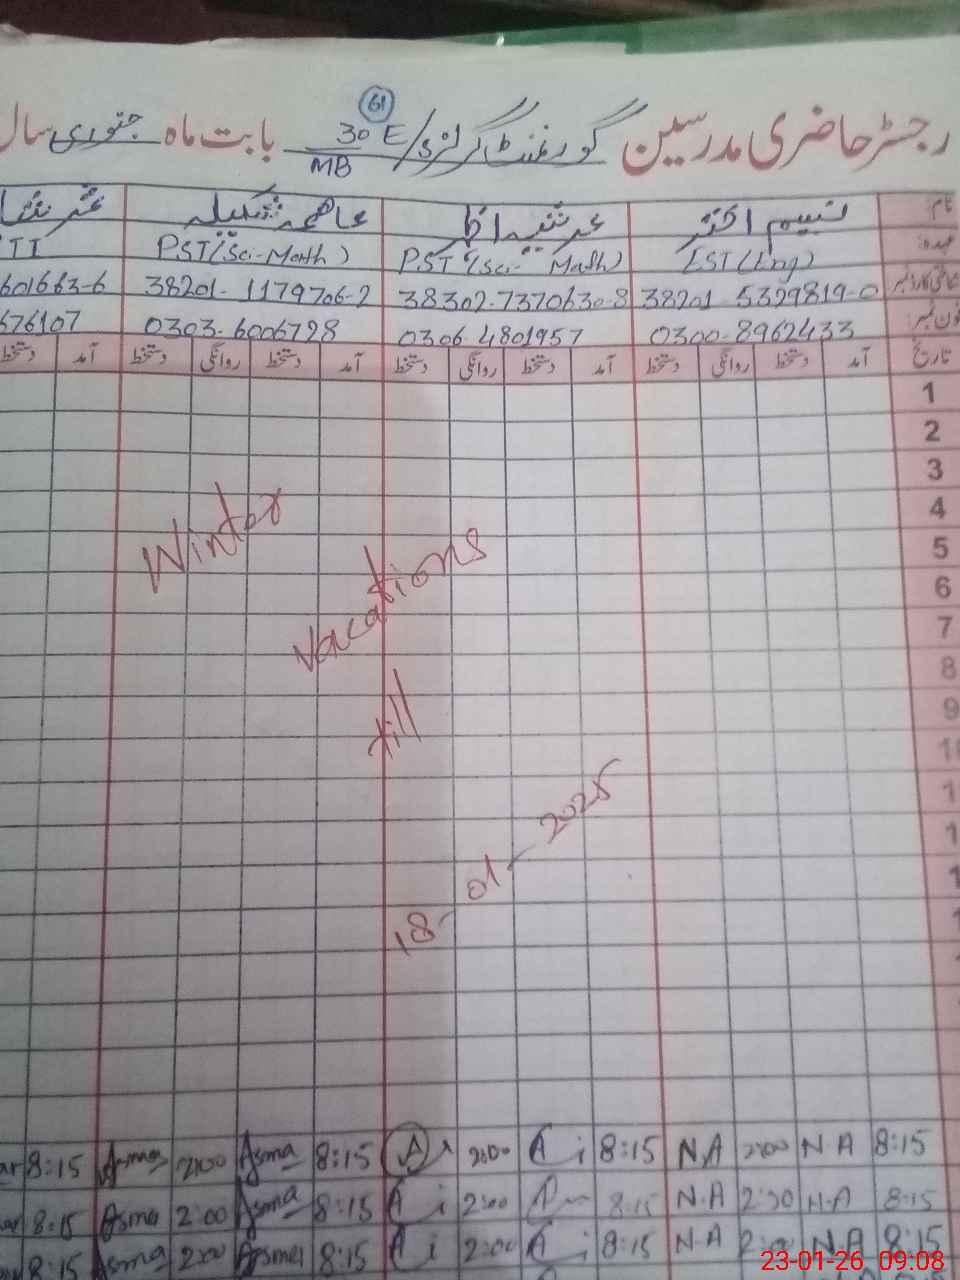 61
رجسٹر حاضری مدرسین گورنمنٹ گرلز 30 E/MB بابت ماہ جنوری سال
نام: نسیم اختر عاصمہ شکیلہ
عہدہ: EST (Eng) PST (Sci-Math) PST (Sci-Math) TTI
38201-5329819-0 38302-7370630-8 38201-1179706-2 601663-6
فون نمبر: 0300-8962433 0306-4801957 0303-6006728 676107
تاریخ آمد دستخط روانگی دستخط آمد دستخط روانگی دستخط آمد دستخط روانگی دستخط آمد دستخط
1
2
3
4
5
6
7
8
9
10
1
1
1
1
Winter
vacations
till
18-01-2025
8:15 Asma 2:00 Asma 8:15 A 2:00 A 8:15 N.A 2:00 N.A 8:15
8:15 Asma 2:00 Asma 8:15 A 2:00 A 8:15 N.A 2:30 N.A 8:15
8:15 Asma 2:00 Asma 8:15 A 2:00 A 8:15 N.A 2:00 N.A 8:15
23-01-26 09:08